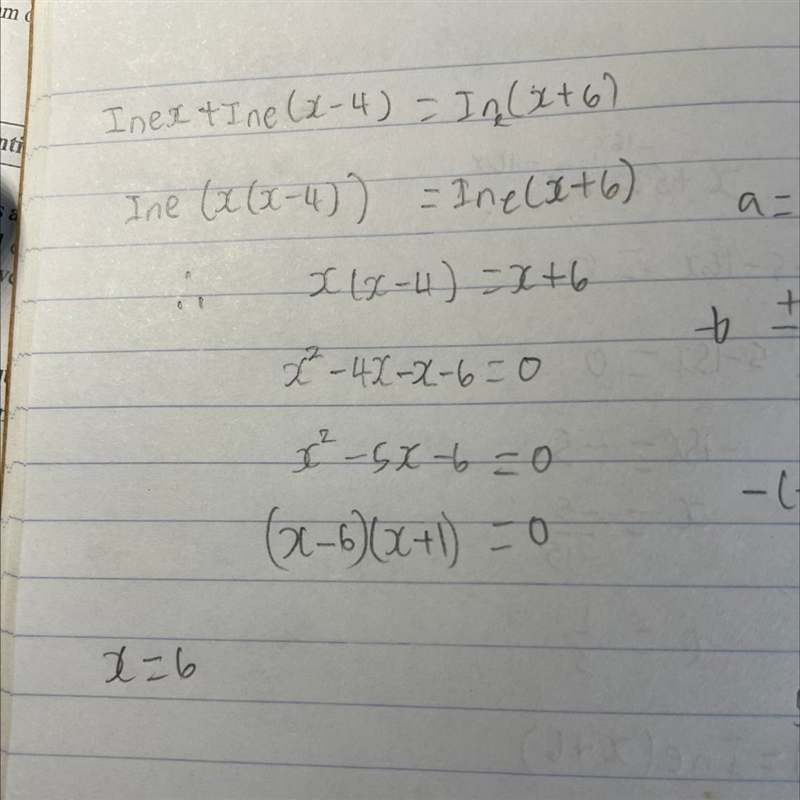 Inex+Ine(x-4) = Ine(x+6)
Ine (x(x-4)) = Ine(x+6)
a=
∴ x(x-4) = x+6
-b ±
x²-4x-x-6=0
x²-5x-6=0
-(
(x-6)(x+1) = 0
x=6